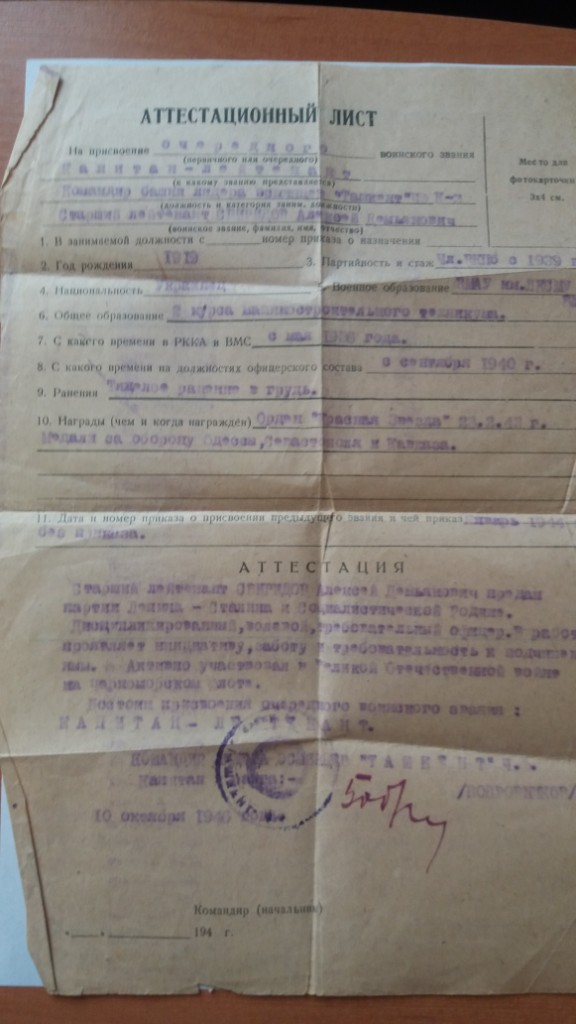 АТТЕСТАЦИОННЫЙ ЛИСТ
На присвоение очередного воинского звания
(первичного или очередного)
Капитан-лейтенант
(к какому званию представляется)
Командир башни лидера эсминцев "Ташкент"
(должность и категория заним. должности)
Старший лейтенант СВИРИДОВ Алексей Демьянович
(воинское звание, фамилия, имя, отчество)
Место для
фотокарточки
3х4 см.
1. В занимаемой должности с номер приказа о назначении
2. Год рождения 1919 3. Партийность и стаж Чл.ВКПб с 1939 г
4. Национальность Украинец Военное образование
6. Общее образование 2 курса машиностроительного техникума.
7. С какого времени в РККА и ВМС с мая 1938 года.
8. С какого времени на должностях офицерского состава с сентября 1940 г.
9. Ранения Тяжелое ранение в грудь.
10. Награды (чем и когда награжден) Орден "Красная Звезда" 23.2.43 г.
Медали за оборону Одессы, Севастополя и Кавказа.
11. Дата и номер приказа о присвоении предыдущего звания и чей приказ Январь 1944
без
АТТЕСТАЦИЯ
Старший лейтенант СВИРИДОВ Алексей Демьянович предан
партии Ленина - Сталина и Социалистической Родине.
Дисциплинированный, волевой, требовательный офицер. В работ
проявляет инициативу, заботу и требовательность к подчинен
ным. Активно участвовал в Великой Отечественной войне
на Черноморском флоте.
Достоин присвоения очередного воинского звания :
КАПИТАН- ЛЕЙТЕНАНТ.
КОМАНДИР ЛИДЕРА ЭСМИНЦЕВ "ТАШКЕНТ"
Капитан ранга:-
/БОБРОВНИКОВ/
10 октября 1946 года.
Командир (начальник)
194 г.